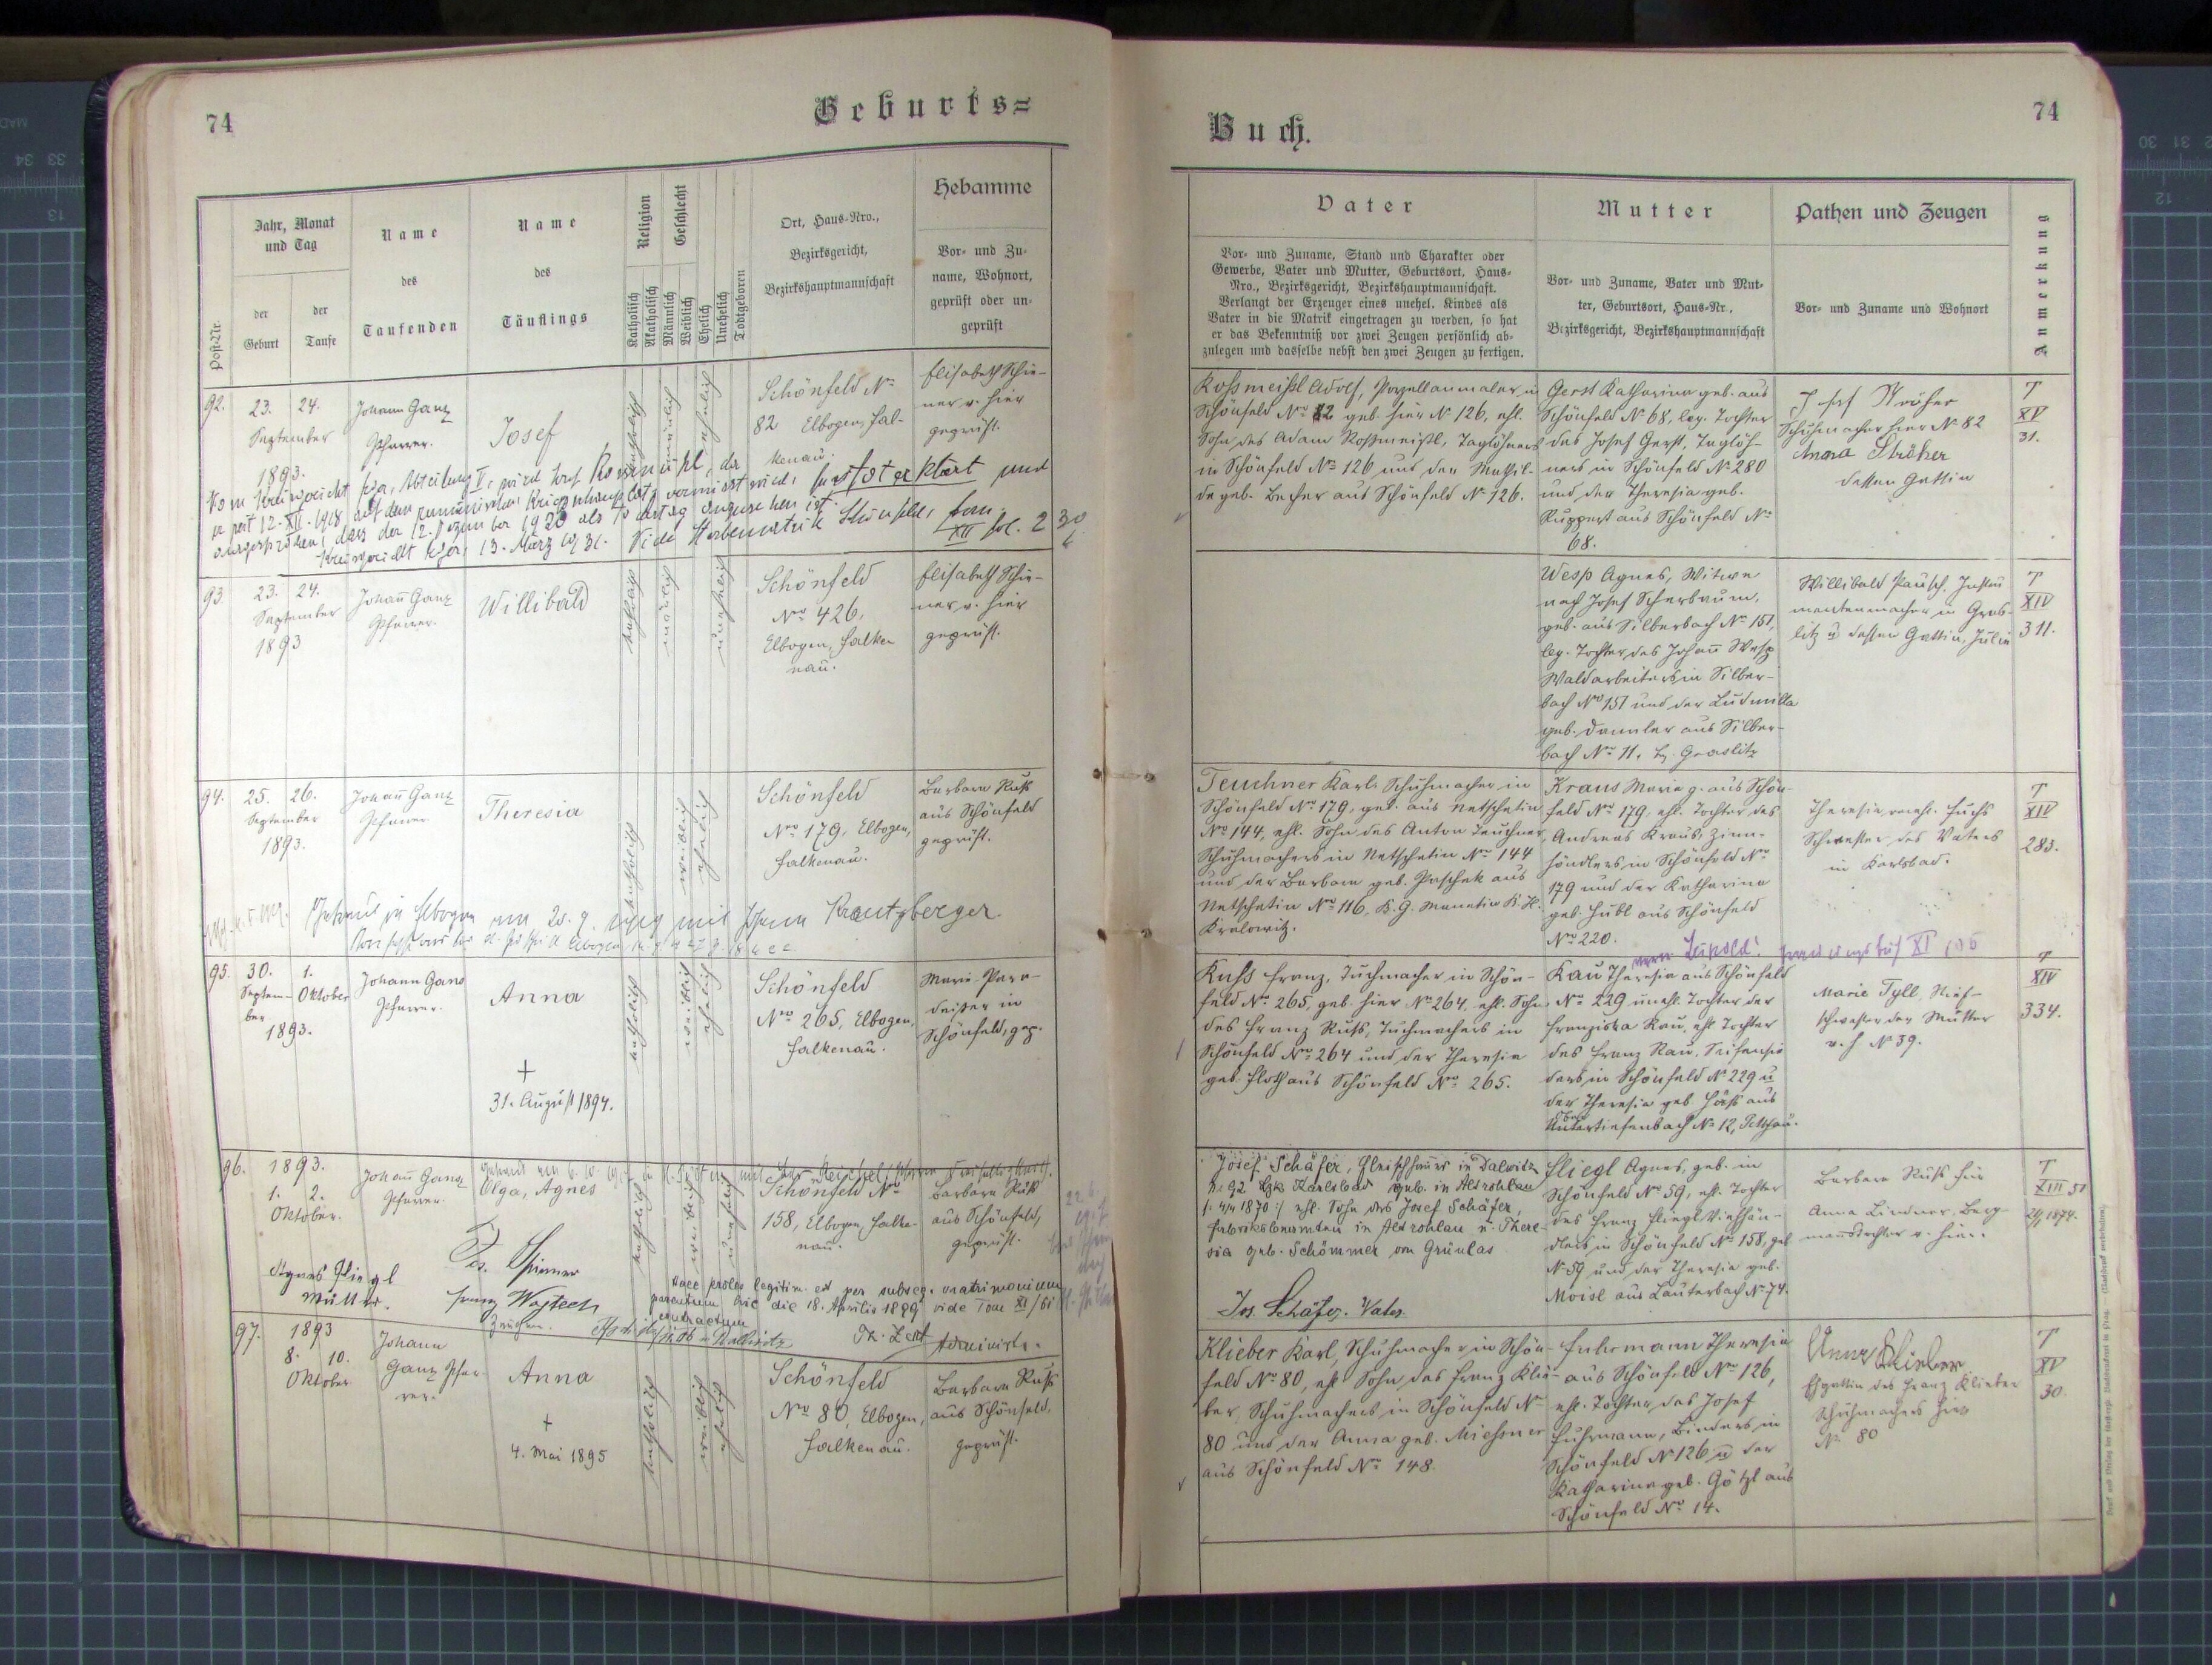 74
Geburts=
Post-Nr.
Jahr, Monat
und Tag
der
Geburt
der
Taufe
Name
des
Taufenden
Name
des
Täuflings
Religion
Katholisch
Akatholisch
Geschlecht
Männlich
Weiblich
Ehelich
Unehelich
Todtgeboren
Ort, Haus-Nro.,
Bezirksgericht,
Bezirkshauptmannschaft
Hebamme
Vor- und Zu-
name, Wohnort,
geprüft oder un-
geprüft
92.
23. 24.
September
1893.
Johann Ganz
Pfarrer.
Josef
katholisch
männlich
ehelich
Schönfeld No
82 Elbogen, Fal-
kenau.
Elisabeth Schie-
ner v. hier
geprüft.
Vom Kreisgericht Eger, Abteilung V, wird Josef Rossmeißl, der
seit 12. XII. 1918 auf dem rumänischen Kriegsschauplatz vermisst wird, für tot erklärt und
ausgesprochen, dass der 12. Dezember 1920 als Todestag anzusehen ist.
Kreisgericht Eger, 13. März 1931. Vide Sterbematrik Schönfeld, tom
XII fol. 230
93.
23. 24.
September
1893
Johann Ganz
Pfarrer.
Willibald
katholisch
männlich
unehelich
Schönfeld
Nro 426,
Elbogen, Falke
nau.
Elisabeth Schie-
ner v. hier
geprüft.
94.
25. 26.
September
1893.
Johann Ganz
Pfarrer
Theresia
katholisch
weiblich
ehelich
Schönfeld
Nro 179, Elbogen,
Falkenau.
Barbara Ruß
aus Schönfeld
geprüft.
Getraut in Elbogen am 20. 9. 1919 mit Johann Krautzberger.
95.
30. 1.
Septem- Oktober
ber
1893.
Johann Ganz
Pfarrer.
Anna
katholisch
weiblich
ehelich
Schönfeld
Nro 265, Elbogen,
Falkenau.
Marie Para-
deißer in
Schönfeld, gep.
+
31. August 1894.
96.
1893.
1. 2.
Oktober.
Johann Ganz
Pfarrer.
Olga, Agnes
katholisch
weiblich
unehelich
Schönfeld No
158, Elbogen, Falke-
nau.
Barbara Ruß
aus Schönfeld,
geprüft.
Agnes Fliegl
Mutter.
Franz Wojtech
Zeugen.
Haec proles legitim. est per subseq. matrimonium
parentum hic die 18. Aprilis 1899 vide Tom XI/61
contractum
Administr.
97.
1893
8. 10.
Oktober
Johann
Ganz Pfar-
rer.
Anna
katholisch
weiblich
ehelich
Schönfeld
Nro 80, Elbogen,
Falkenau.
Barbara Ruß
aus Schönfeld.
geprüft.
+
4. Mai 1895
Buch.
74
Vater
Vor- und Zuname, Stand und Charakter oder
Gewerbe, Vater und Mutter, Geburtsort, Haus-
Nro., Bezirksgericht, Bezirkshauptmannschaft.
Verlangt der Erzeuger eines unehel. Kindes als
Vater in die Matrik eingetragen zu werden, so hat
er das Bekenntniß vor zwei Zeugen persönlich ab-
zulegen und dasselbe nebst den zwei Zeugen zu fertigen.
Mutter
Vor- und Zuname, Vater und Mut-
ter, Geburtsort, Haus-Nr.,
Bezirksgericht, Bezirkshauptmannschaft
Pathen und Zeugen
Vor- und Zuname und Wohnort
Anmerkung
Roßmeißl Adolf, Porzellanmaler in
Schönfeld Nro 82 geb. hier N 126, ehl.
Sohn des Adam Roßmeißl, Taglöhners
in Schönfeld No 126 und der Mathil-
de geb. Becher aus Schönfeld No 126.
Gerst Katharina geb. aus
Schönfeld No 68, leg. Tochter
des Josef Gerst, Taglöh-
ners in Schönfeld No 280
und der Theresia geb.
Ruppert aus Schönfeld No
68.
Josef Ströher
Schuhmacher hier No 82
Anna Ströher
dessen Gattin
T
XV
31.
Wesp Agnes, Witwe
nach Josef Scherbaum,
geb. aus Silberbach No 151,
leg. Tochter des Johann Wesp
Waldarbeiters in Silber-
bach No 151 und der Ludmilla
geb. Dannler aus Silber-
bach No 11. Bz. Graslitz
Willibald Pausch, Instru
mentenmacher in Gras-
litz u dessen Gattin, Julie
T
XIV
311.
Teuchner Karl, Schuhmacher in
Schönfeld Nro 179, geb. aus Netschetin
No 144, ehl. Sohn des Anton Teuchner,
Schuhmachers in Netschetin No 144
und der Barbara geb. Paschek aus
Netschetin No 116, B. G. Manetin B. H.
Kralowitz.
Kraus Maria g. aus Schön-
feld No 179, ehl. Tochter des
Andreas Kraus, Zinn-
händlers in Schönfeld Nro
179 und der Katharina
geb. Hubl aus Schönfeld
No 220.
Theresia, verehl. Fuchs
Schwester des Vaters
in Karlsbad.
T
XIV
283.
Kuhs Franz, Tuchmacher in Schön-
feld No 265, geb. hier No 264, ehl. Sohn
des Franz Kuhs, Tuchmachers in
Schönfeld No 264 und der Theresia
geb. Floth aus Schönfeld No 265.
Rau Theresia aus Schönfeld
No 229 unehl. Tochter der
Franziska Rau, ehl. Tochter
des Franz Rau, Seifensie
ders in Schönfeld No 229 u
der Theresia geb. Häß aus
Untertiefenbach No 12, Petschau.
Marie Tyll, Stief-
schwester der Mutter
v. h No 39.
T
XIV
334.
Josef Schäfer, Fleischhauer in Dalwitz
N: 92 Bzk Karlsbad geb. in Altrohlau
1870 :/ ehl. Sohn des Josef Schäfer,
Fabriksbeamten in Altrohlau u. There-
sia geb. Schömmer von Grünlas
Jos. Schäfer. Vater
Fliegl Agnes, geb. in
Schönfeld No 59, ehl. Tochter
des Franz Fliegl Viehhän-
dlers in Schönfeld No 158, geb
No 59 und der Theresia geb.
Moisl aus Lauterbach No 74.
Barbara Ruß hier
Anna Lindner, Berg-
mannstochter v. hier.
T
XIII 51
Klieber Karl, Schuhmacher in Schön-
feld No 80, ehl Sohn des Franz Klie-
ber, Schuhmachers in Schönfeld No
80 und der Anna geb. Miessner
aus Schönfeld No 148.
Fuhrmann Theresia
aus Schönfeld No 126,
ehl. Tochter des Josef
Fuhrmann, Binders in
Schönfeld No 126 u der
Katharina geb. Götzl aus
Schönfeld No 14.
Anna Klieber
Ehgattin des Franz Klieber
Schuhmachers hier
No 80
T
XV
30.